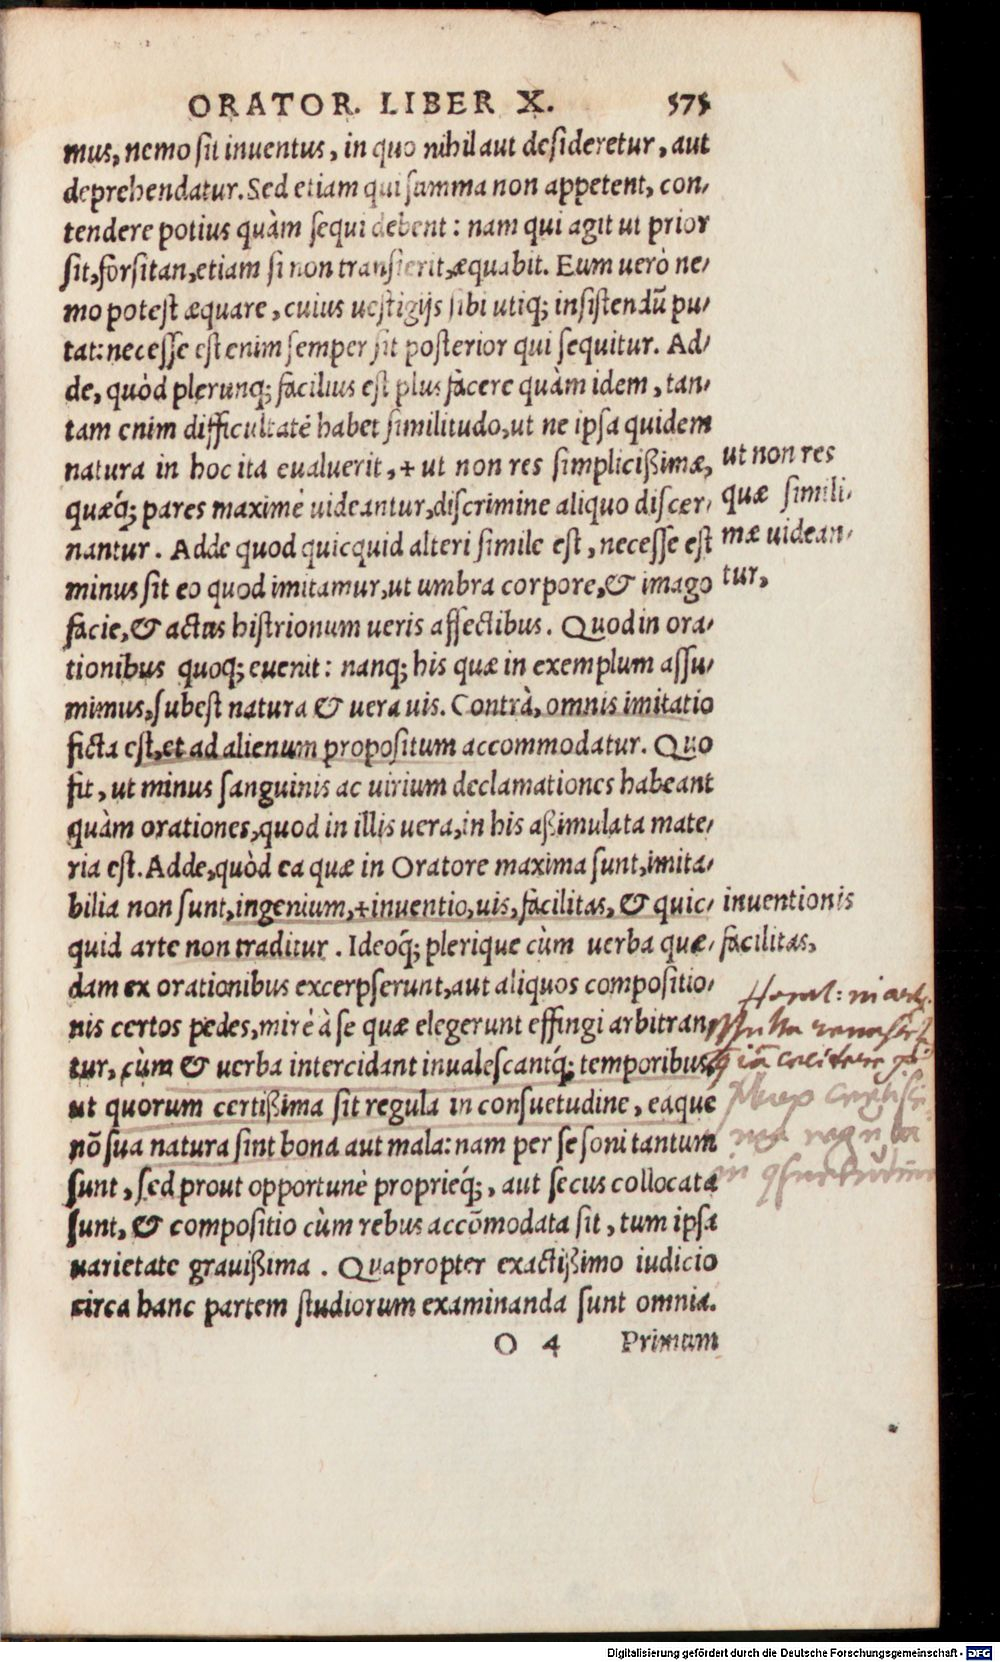 ORATOR. LIBER X. 575
mus, nemo sit inventus, in quo nihil aut desideretur, aut
deprehendatur. Sed etiam qui summa non appetent, con,
tendere potius quàm sequi debent: nam qui agit ut prior
sit, forsitan, etiam si non transierit, æquabit. Eum uerò ne,
mo potest æquare, cuius uestigijs sibi utiq; insistendū pu,
tat: necesse est enim semper sit posterior qui sequitur. Ad,
de, quòd plerunq; facilius est plus facere quàm idem, tan,
tam enim difficultatē habet similitudo, ut ne ipsa quidem
natura in hoc ita eualuerit, + ut non res simplicißimæ,
quæq́; pares maximè uideantur, discrimine aliquo discer,
nantur. Adde quod quicquid alteri simile est, necesse est
minus sit eo quod imitamur, ut umbra corpore, & imago
facie, & actus histrionum ueris affectibus. Quod in ora,
tionibus quoq; euenit: nanq; his quæ in exemplum assu,
mimus, subest natura & uera uis. Contrà, omnis imitatio
ficta est, et ad alienum propositum accommodatur. Quo
fit, ut minus sanguinis ac uirium declamationes habeant
quàm orationes, quod in illis uera, in his aßimulata mate,
ria est. Adde, quòd ea quæ in Oratore maxima sunt, imita,
bilia non sunt, ingenium, + inuentio, uis, facilitas, & quic,
quid arte non traditur. Ideoq́; plerique cùm uerba quæ,
dam ex orationibus excerpserunt, aut aliquos compositio,
nis certos pedes, mirè à se quæ elegerunt effingi arbitran,
tur, cùm & uerba intercidant inualescantq́; temporibus,
ut quorum certißima sit regula in consuetudine, eaque
nō sua natura sint bona aut mala: nam per se soni tantum
sunt, sed prout opportunè propriéq́;, aut secus collocata
sunt, & compositio cùm rebus accōmodata sit, tum ipsa
uarietate grauißima. Quapropter exactißimo iudicio
circa hanc partem studiorum examinanda sunt omnia.
O 4 Primum
ut non res
quæ simili,
mæ uidean,
tur,
inuentionis
facilitas,
Horat: in art.
Multa